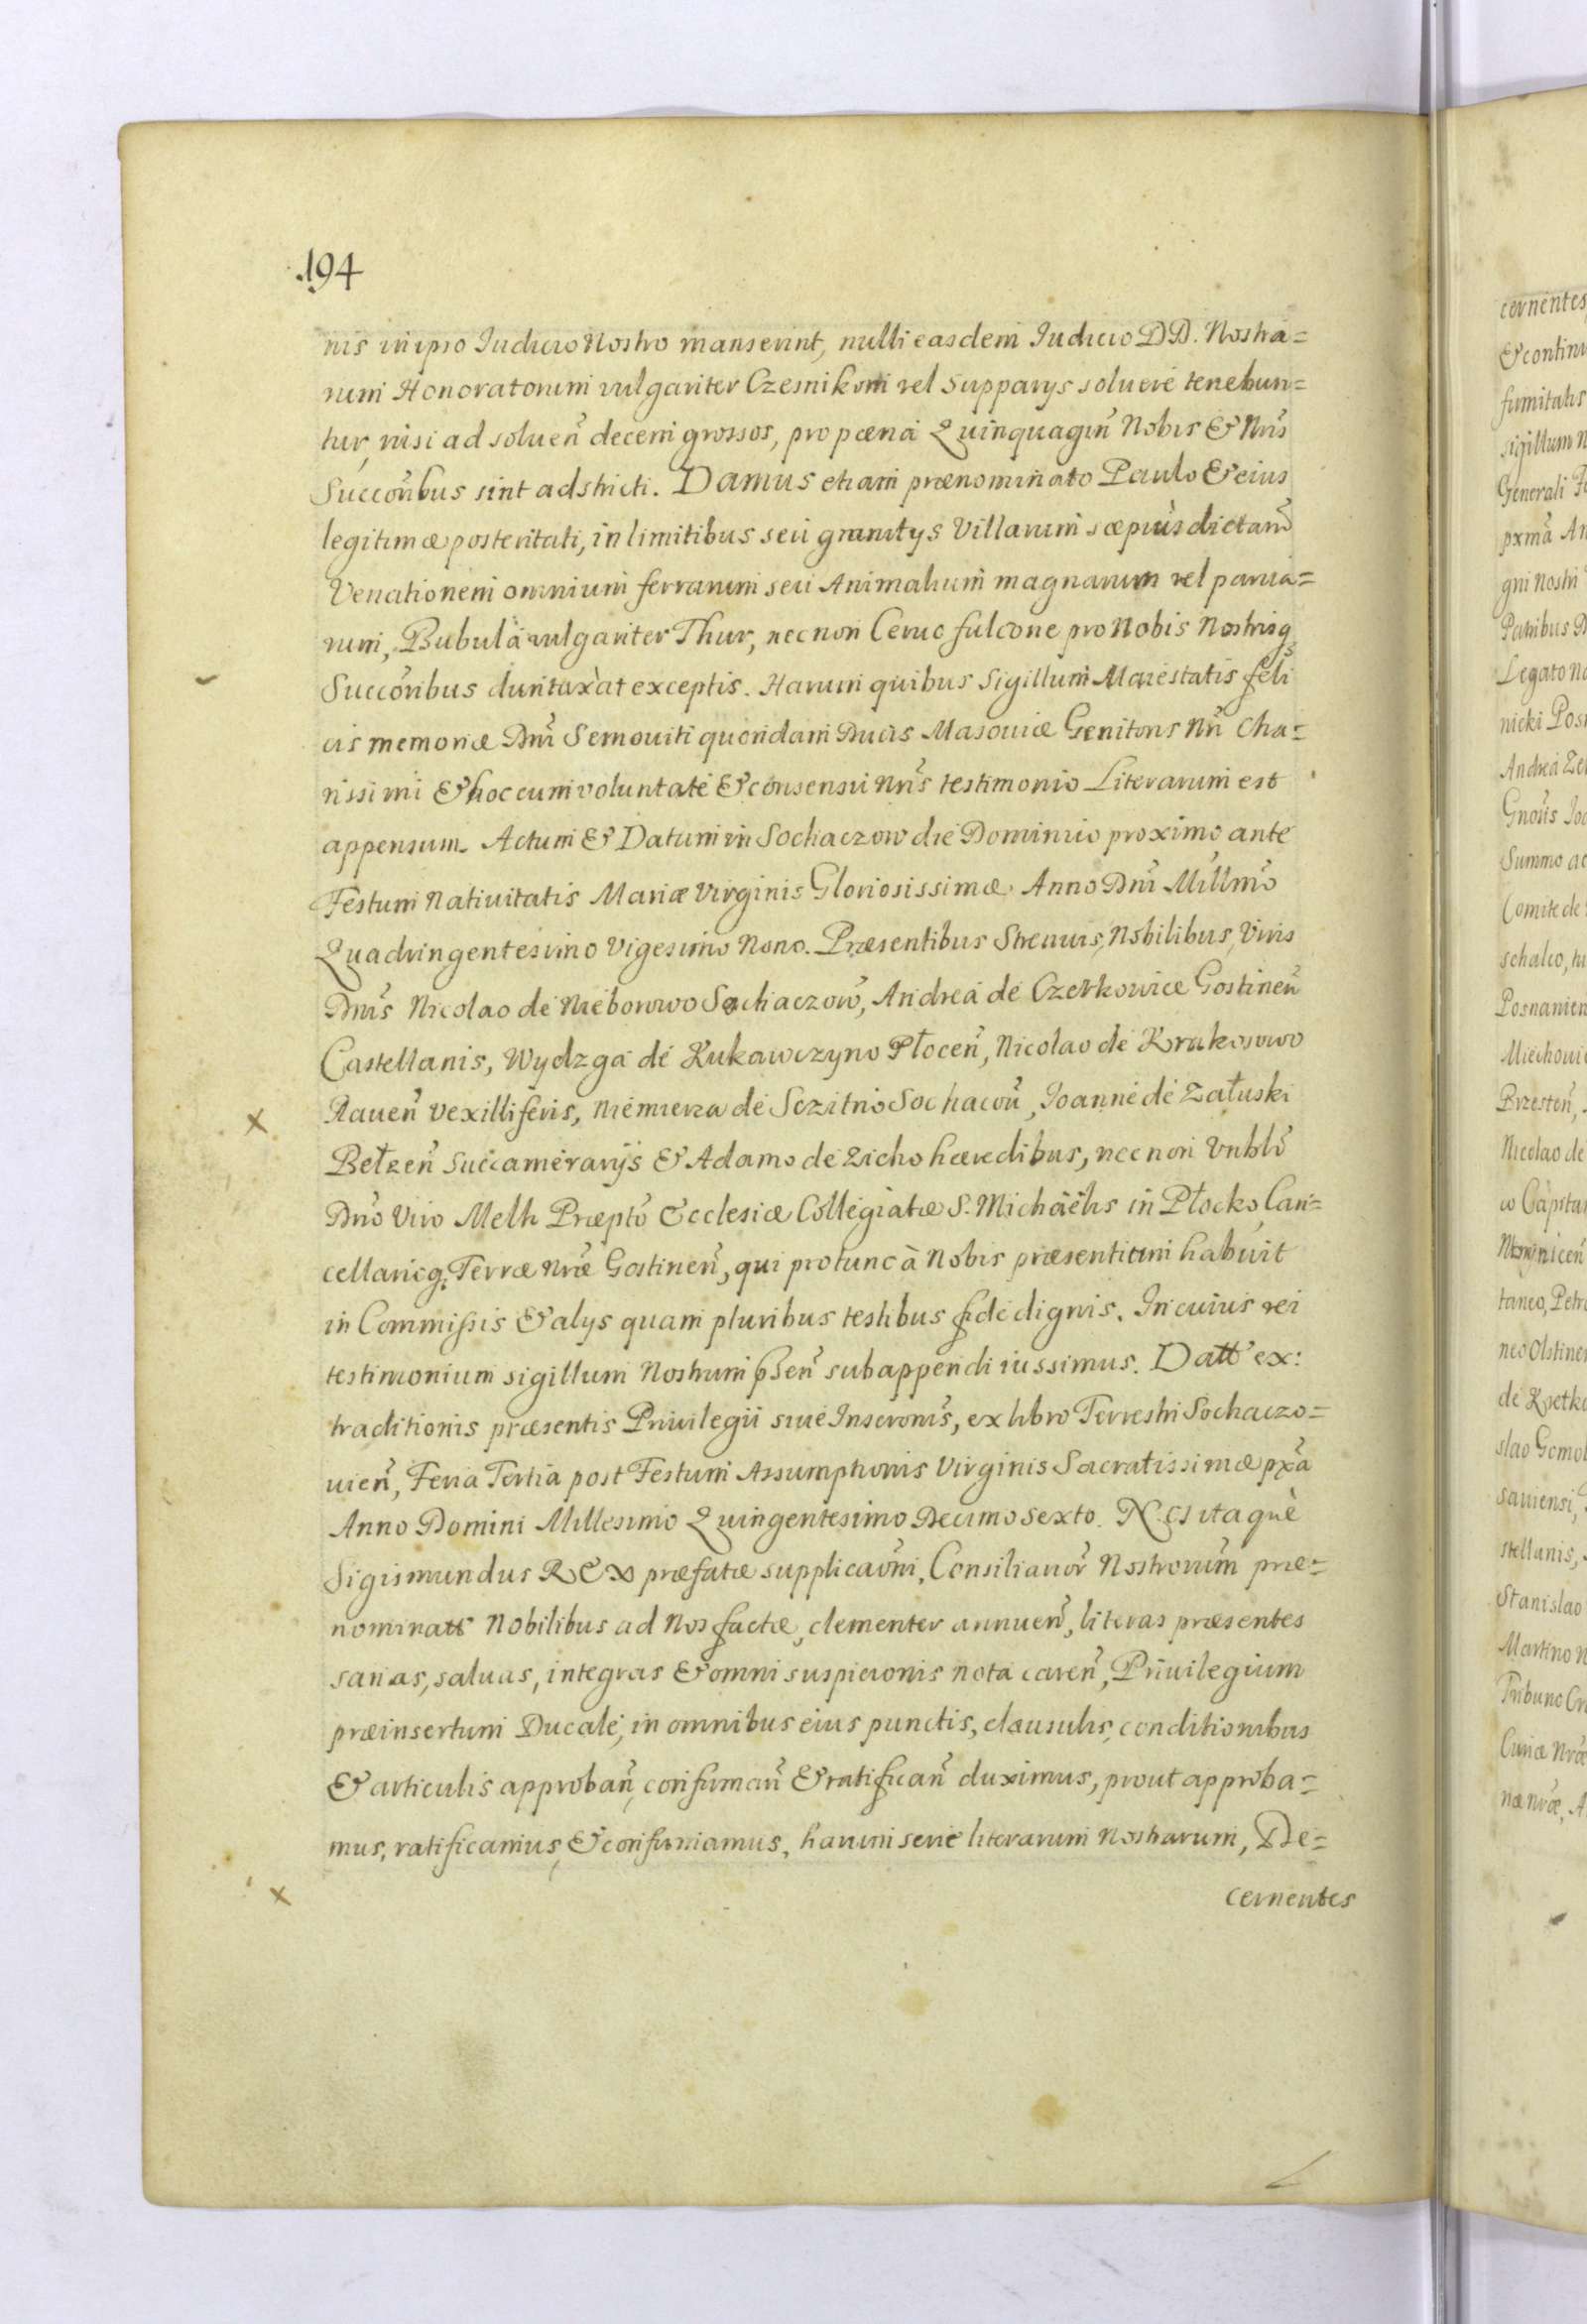 194
nis in ipso Iudicio Nostro manserint, nulli easdem Iudicio DD. Nostra=
rum Honoratorum vulgariter Czesnikom vel Supparijs soluere tenebun=
tur, nisi ad soluen̄ decem grossos, pro pœna Quinquagin̄ Nobis & Nr̄is
Succor̄ibus sint adstricti. Damus etiam prænominato Paulo & eius
legitimæ posteritati, in limitibus seu granitijs Villarum sæpius dictar̄
Venationem omnium ferrarum seu Animalium magnarum vel parua=
rum, Bubula vulgariter Thur, nec non Ceruo fulcone pro Nobis Nostrisq,
Succor̄ibus duntaxàt exceptis. Harum quibus Sigillum Maiestatis feli
cis memoriæ Dn̄i Semouiti quondam Ducis Masouiæ Genitoris Nr̄i Cha=
rissimi & hoc cum voluntate & consensu Nr̄is testimonio Literarum est
appensum. Actum & Datum in Sochaczow die Dominico proximo ante
Festum Natiuitatis Mariæ Virginis Gloriosissimæ Anno Dn̄i Millm̄o
Quadringentesimo Vigesimo Nono. Præsentibus Strenuis, Nobilibus, Viris
Dn̄is Nicolao de Nieborowo Sochaczow̄, Andrea de Czerkowice Gostinen̄
Castellanis, Wydzga de Kukawczyno Płocen̄, Nicolao de Krukosowo
Rauen̄ vexilliferis, Niemierza de Sczitno Sochacou̅, Joanne de Załuski
Bełzen̄ Succamerarijs & Adamo de Zicho hæredibus, nec non Vnbl̄o
Dn̄o Viro Melh Præpt̄o Ecclesiæ Collegiatæ S. Michaëlis in Płocko, Can=
cellarioq, Terræ Nr̄æ Gostinen̄, qui pro tunc à Nobis præsentium habuit
in Commissis & alys quam pluribus testibus fide dignis. In cuius rei
testimonium sigillum Nostrum p̄sen̄ subappendi iussimus. Datt̄ ex:
traditionis præsentis Priuilegii siue Inscronis̄, ex libro Terrestri Sochaczo=
uien̄, Feria Tertia post Festum Assumptionis Virginis Sacratissimæ px̄a
Anno Domini Millesimo Quingentesimo Decimo Sexto. Nos itaquè
Sigismundus REX præfatæ supplicaōni, Consiliarior̄ Nostrorum præ=
nominatt̄ Nobilibus ad Nos factæ, clementer annuen̄, literas præsentes
sanas, saluas, integras & omni suspicionis nota caren̄, Priuilegium
præinsertum Ducale, in omnibus eius punctis, clausulis, conditionibus
& articulis approban̄, confirman̄ & ratifican̄ duximus, prout approba=
mus, ratificamus, & confirmamus, harum serie literarum Nostrarum, De=
cernentes